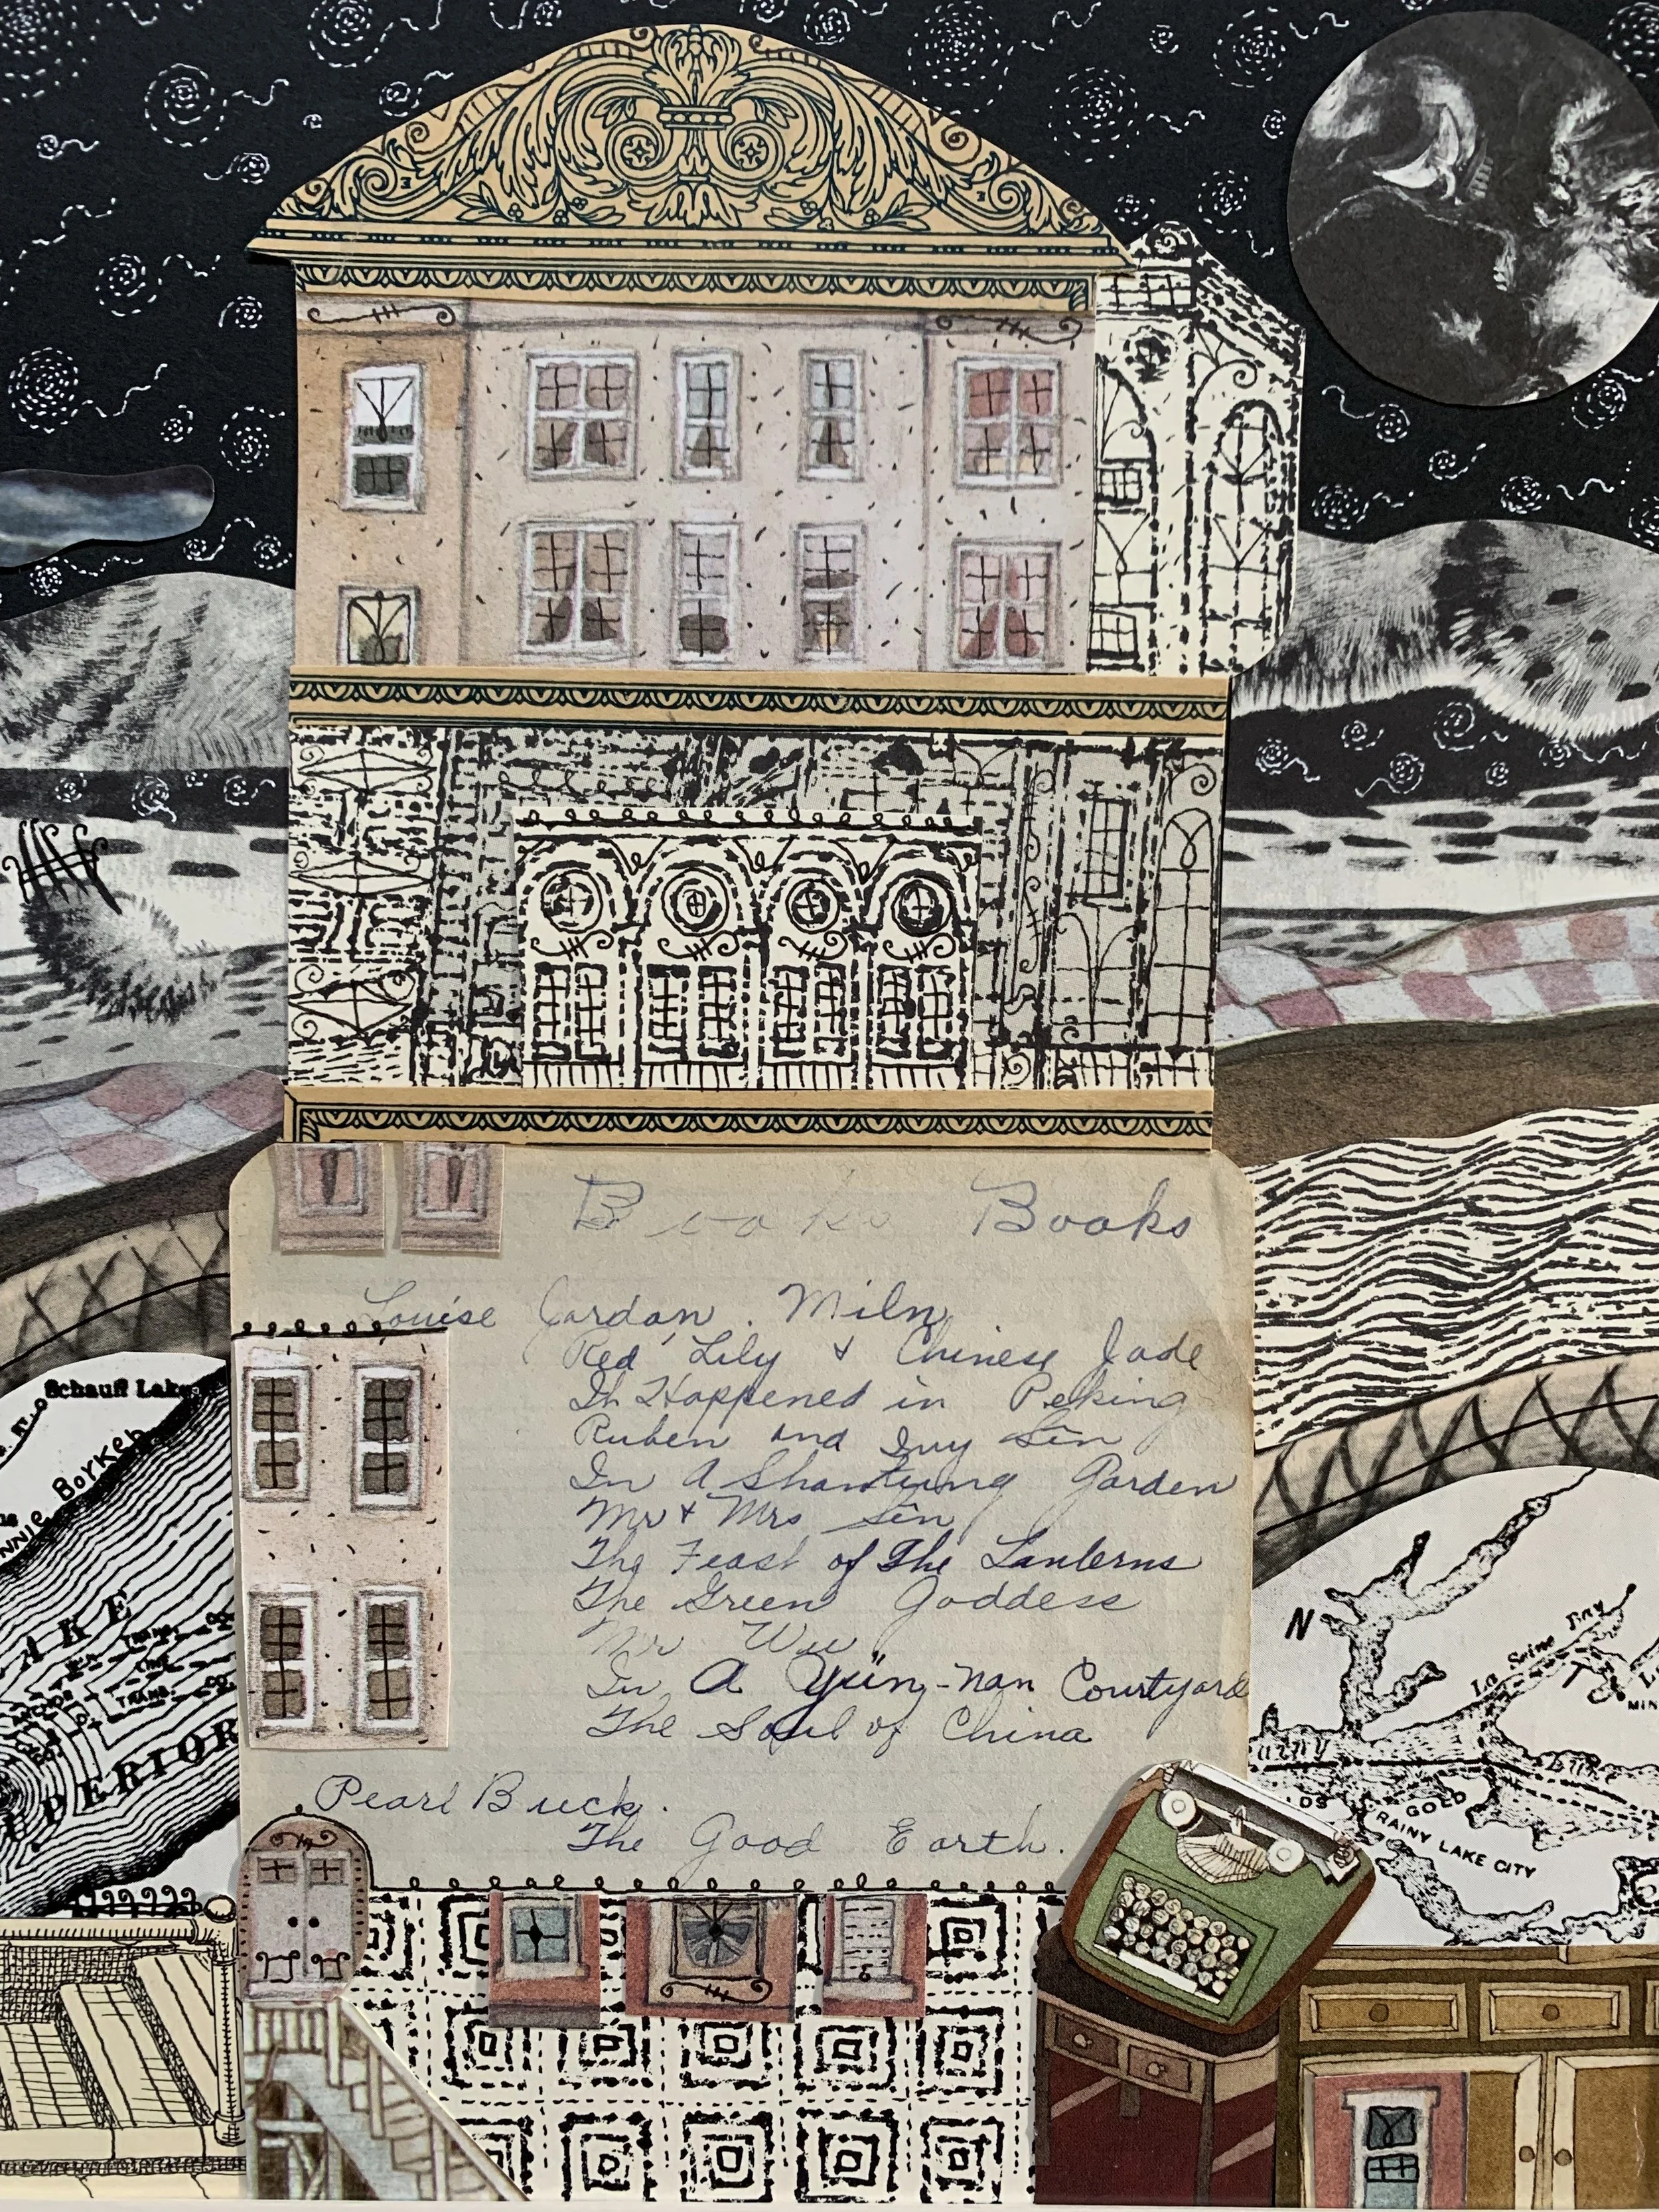 Books Books
Louise Jordan. Miln
Red Lily & Chinese Jade
It Happened in Peking
Ruben and Ivy Sên
In A Shantung Garden
Mr & Mrs Sên
The Feast of The Lanterns
The Green Goddess
Mr Wu
In A Yün-nan Courtyard
The Soul of China
Pearl Buck.
The Good Earth.
Schauff Lake
Borkeh
NNIE
AKE
TRANS.
LINE
TRANS. CO.
PERIOR
N
La Seine Tiny
MIN
LDS
GOLD
RAINY LAKE CITY